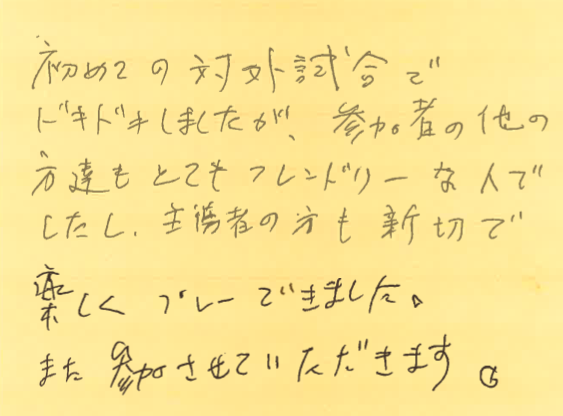 初めての対外試合で
ドキドキしましたが、参加者の他の
方達もとてもフレンドリーな人で
したし、主催者の方も新切で
楽しくプレーできました。
また参加させていただきます。